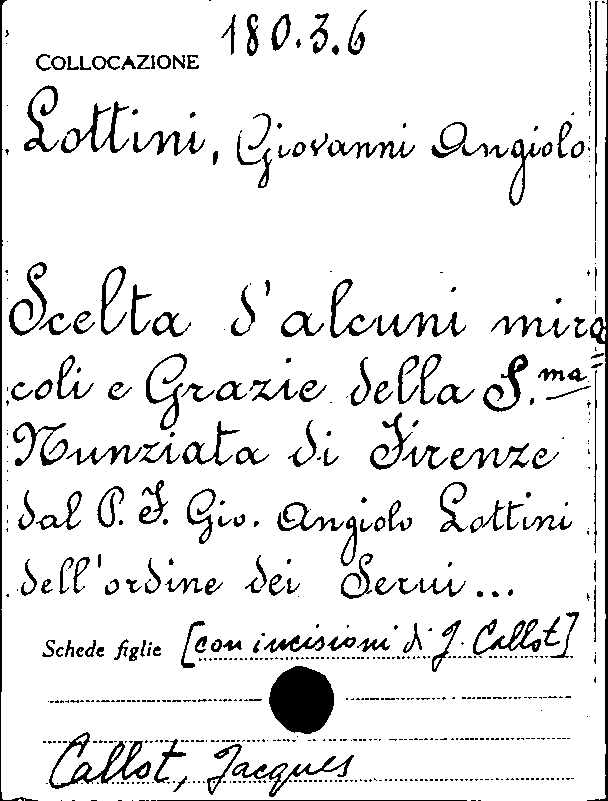 180.3.6
COLLOCAZIONE
Lottini, Giovanni Angiolo
Scelta d'alcuni mira
coli e Grazie della S.ma
Nunziata di Firenze
dal P. F. Gio. Angiolo Lottini
dell'ordine dei Servi...
Schede figlie [con incisioni di J. Callot]
Callot, Jacques